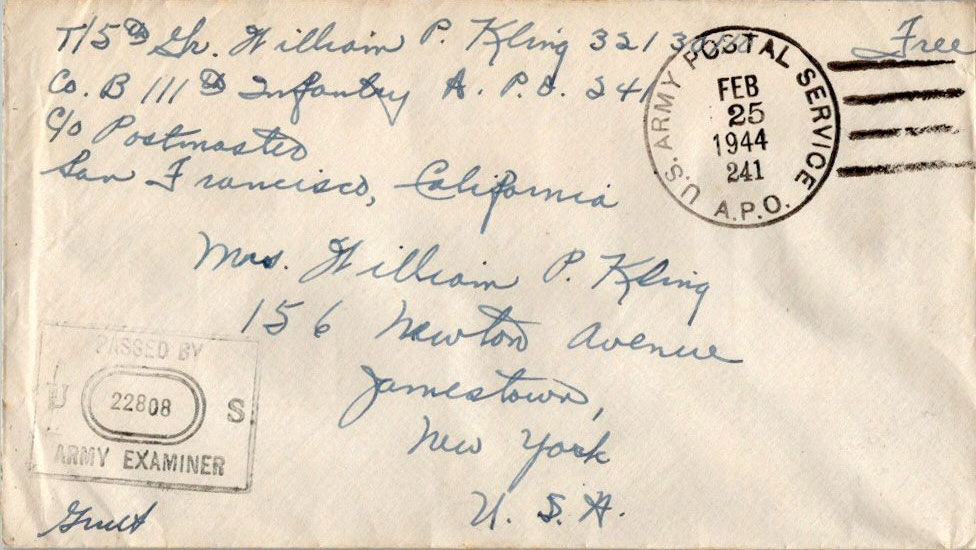 T/5th Gr. William P. Kling
Free
Co. B 111th Infantry A. P. O. 241
c/o Postmaster
San Francisco, California
U.S. ARMY POSTAL SERVICE
FEB
25
1944
241
A.P.O.
Mrs. William P. Kling
156 Newton Avenue
Jamestown,
New York
U. S. A.
PASSED BY
U 22808 S
ARMY EXAMINER